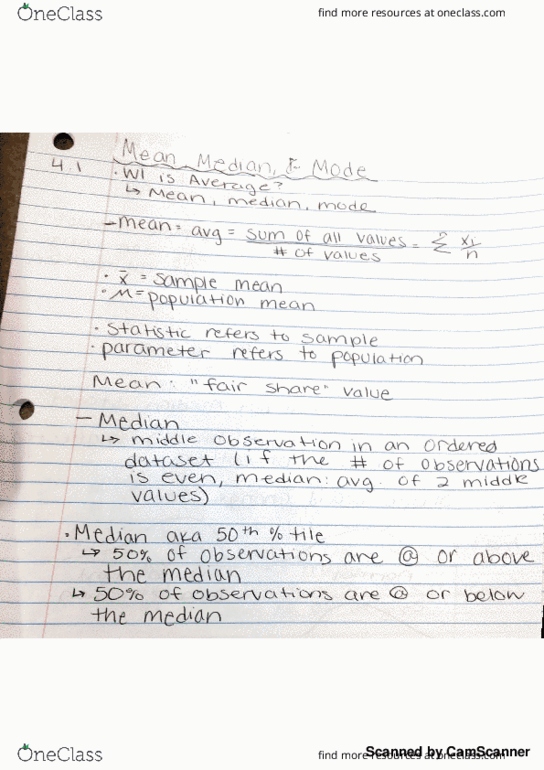 OneClass find more resources at oneclass.com
4.1 Mean, Median, & Mode
· WI is Average?
↳ Mean, median, mode
- mean = avg = sum of all values / # of values = Σ xi/n
· x̄ = sample mean
· M = population mean
· Statistic refers to sample
· parameter refers to population
Mean: "fair share" value
- Median
↳ middle observation in an ordered
dataset (if the # of observations
is even, median: avg. of 2 middle
values)
· Median aka 50th %tile
↳ 50% of observations are @ or above
the median
↳ 50% of observations are @ or below
the median
OneClass find more resources at oneclass.com
Scanned by CamScanner